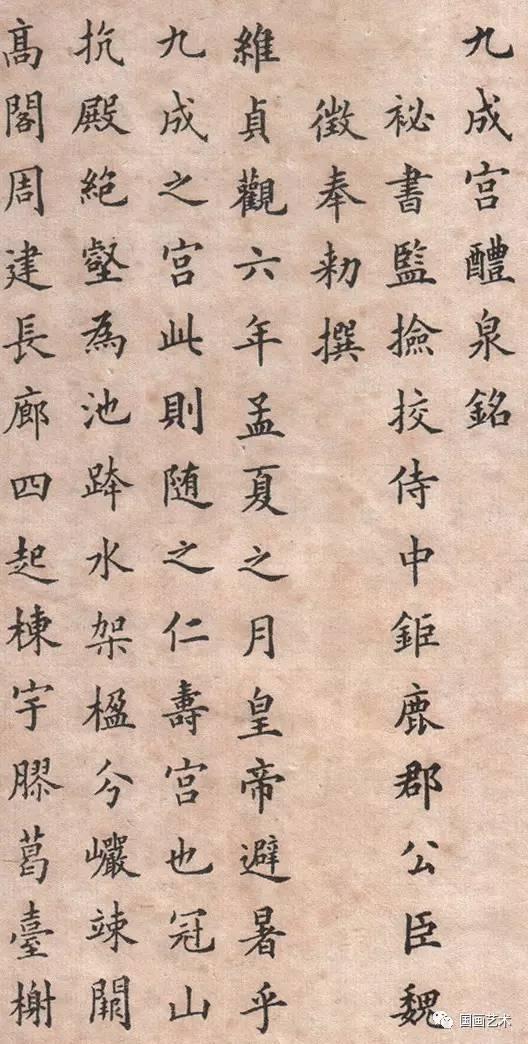 九成宫醴泉銘
祕書監撿挍侍中鉅鹿郡公臣魏
徵奉勑撰
維貞觀六年孟夏之月皇帝避暑乎
九成之宮此則随之仁壽宫也冠山
抗殿絶壑為池跨水架楹分巖竦闕
髙閣周建長廊四起棟宇膠葛臺榭
国画艺术